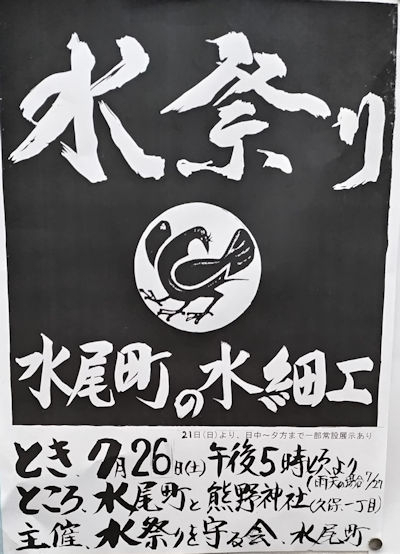 水祭り
水尾町の水細工
21日(日)より、日中〜夕方まで一部常設展示あり
とき 7月26日(土) 午後5時頃より
(雨天の場合7/27
ところ、水尾町と熊野神社(久保、一丁目)
主催、水祭りを守る会、水尾町